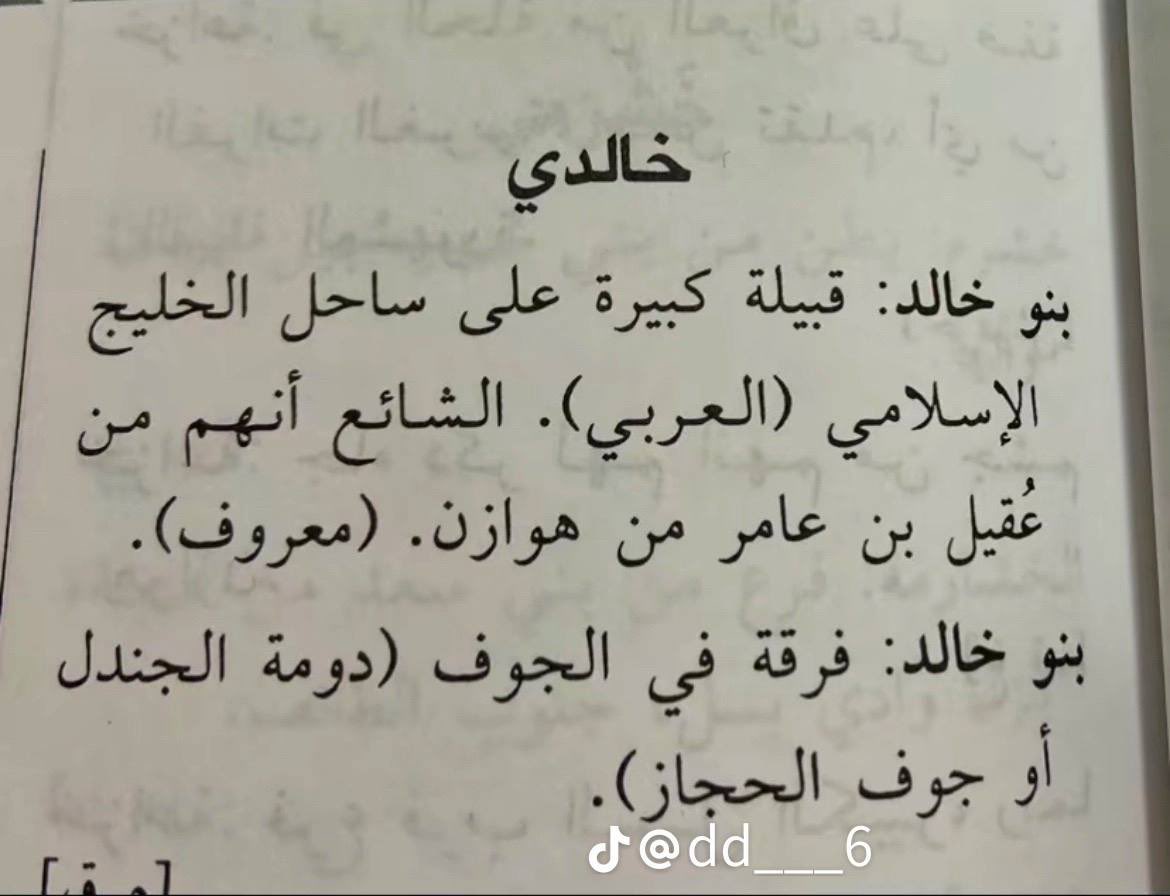 خالدي
بنو خالد: قبيلة كبيرة على ساحل الخليج
الإسلامي (العربي). الشائع أنهم من
عُقيل بن عامر من هوازن. (معروف).
بنو خالد: فرقة في الجوف (دومة الجندل
أو جوف الحجاز).
@dd___6